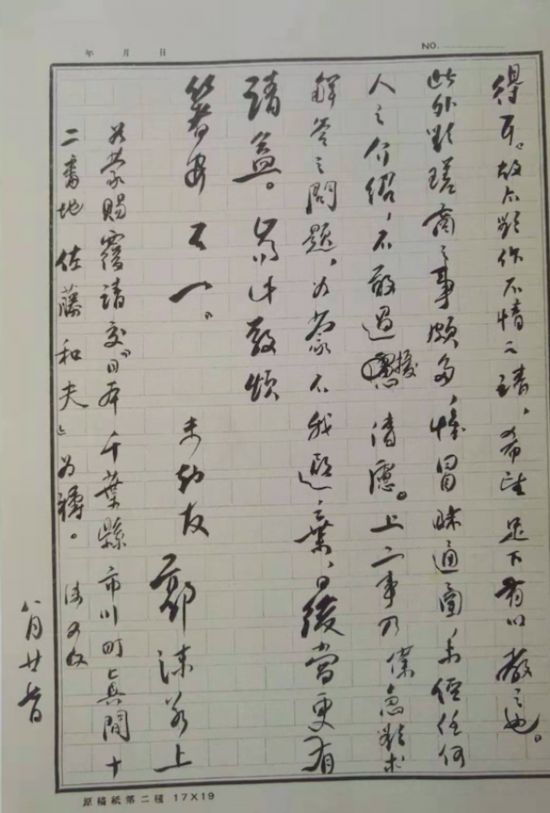 年 月 日
NO.
得耳。故亦欲作不情之請,希望足下有以教之也。
此外欲磋商之事頗多,惟冒昧通函,未經任何
人之介紹,不敢過擾清慮。上二事乃僕急欲求
解答之問題,如蒙不我遐棄,日後當更有
請益。此敬頌
著安不一。
未知友 郭沫若上
如蒙賜覆請交「日本千葉縣市川町真間十
二番地 佐藤和夫」為禱。 沫又及
八月廿
原稿紙第二種 17X19